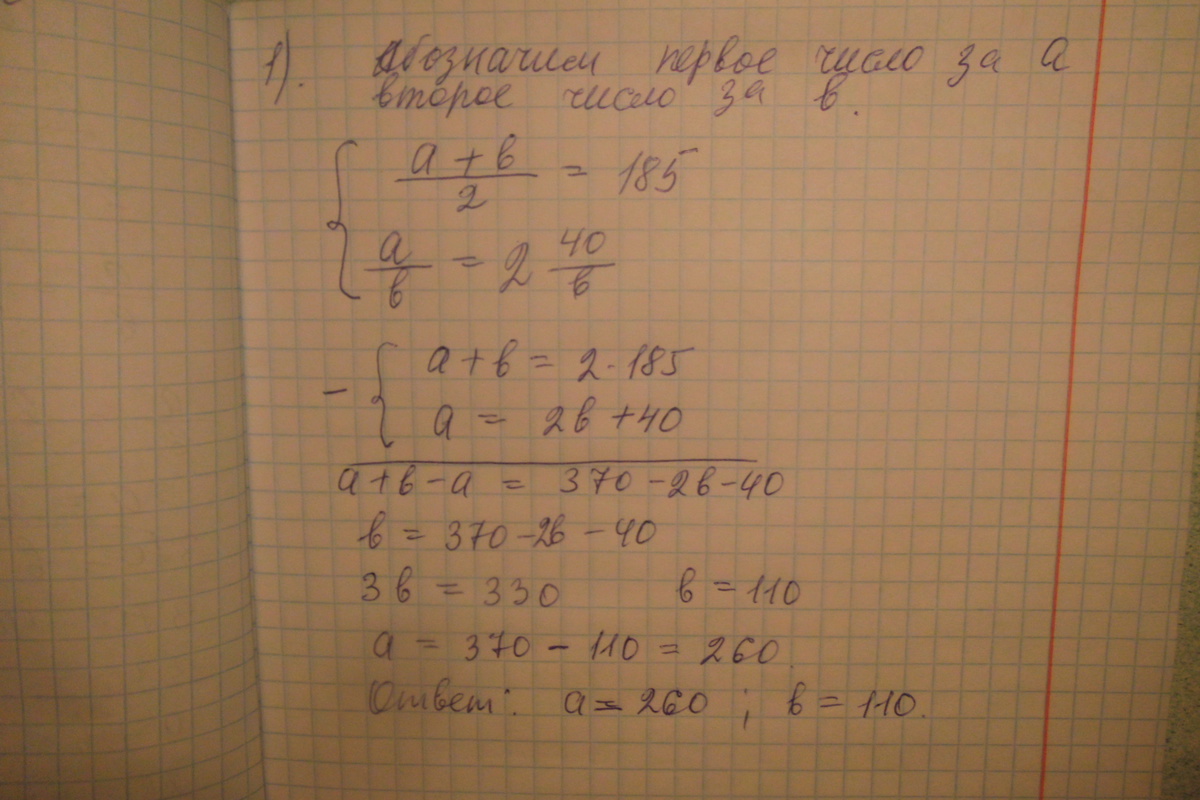 1). Обозначим первое число за a
второе число за в.
{ (a + в)/2 = 185
a/в = 2 40/в
- { a + в = 2 · 185
a = 2в + 40
a + в - a = 370 - 2в - 40
в = 370 - 2в - 40
3в = 330 в = 110
a = 370 - 110 = 260.
Ответ: a = 260 ; в = 110.